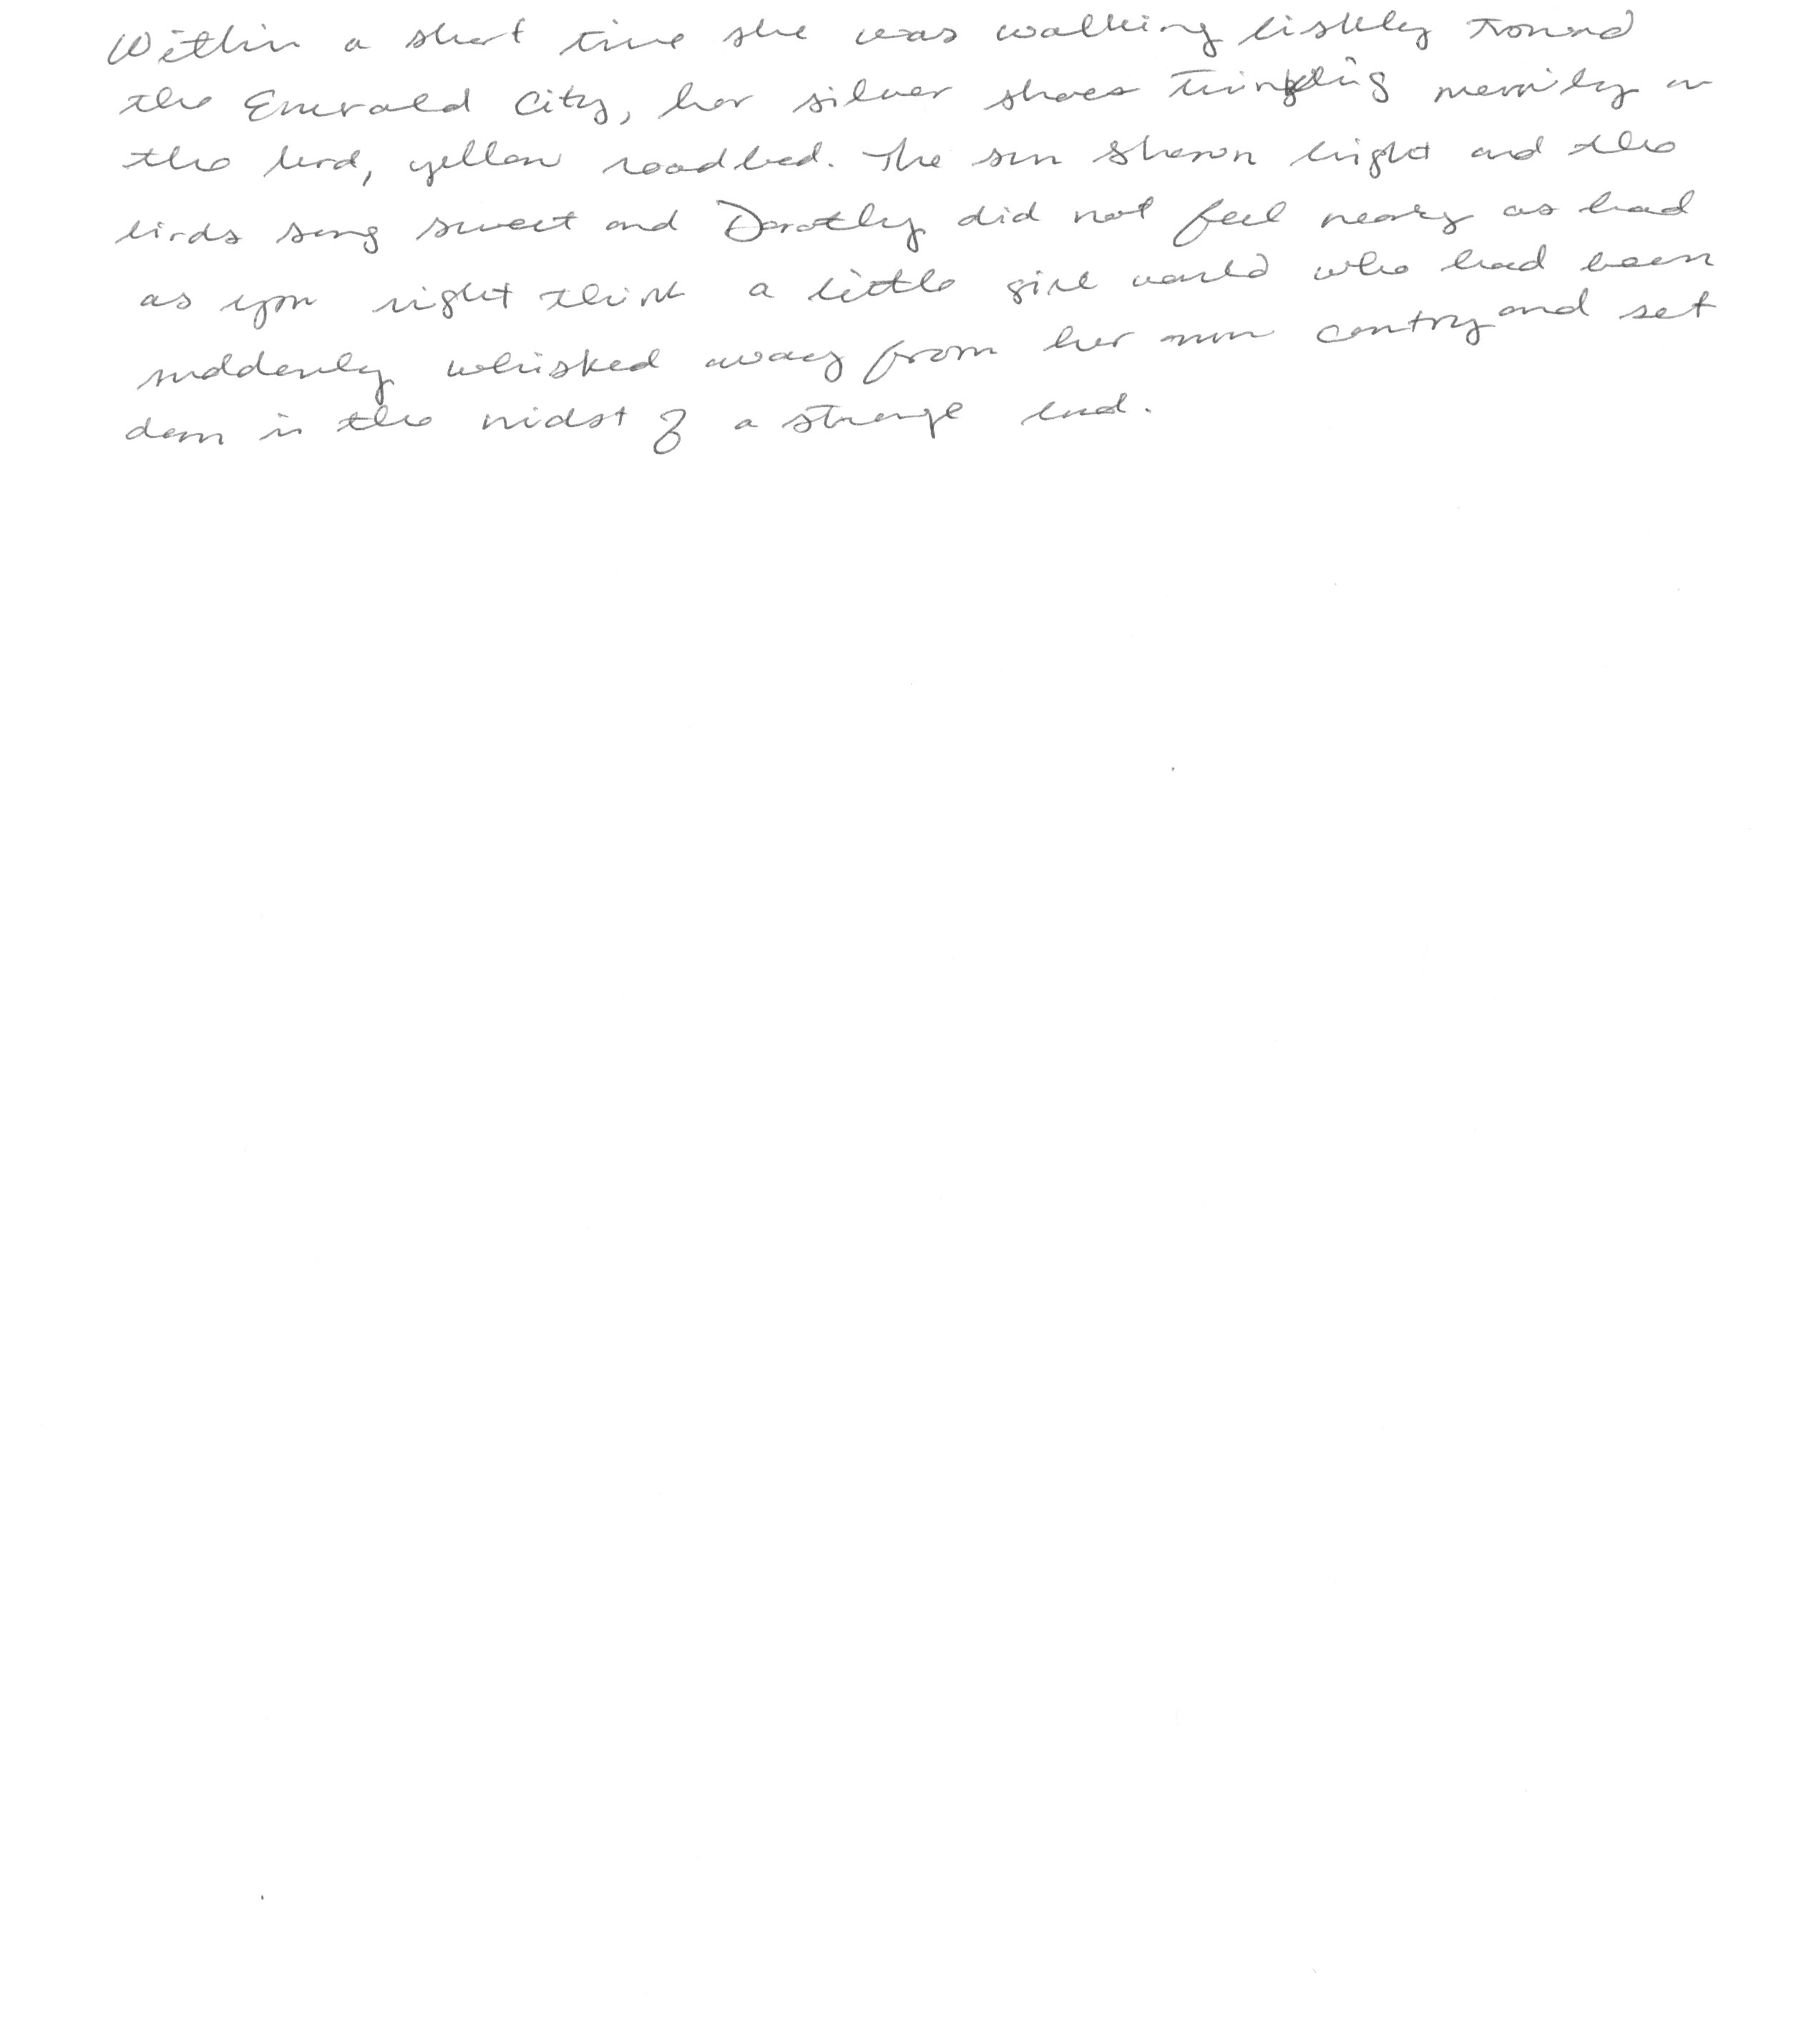 Within a short time she was walking briskly toward
the Emerald City, her silver shoes twinkling merrily on
the hard, yellow roadbed. The sun shown bright and the
birds sang sweet and Dorothy did not feel nearly as bad
as you might think a little girl would who had been
suddenly whisked away from her own country and set
down in the midst of a strange land.